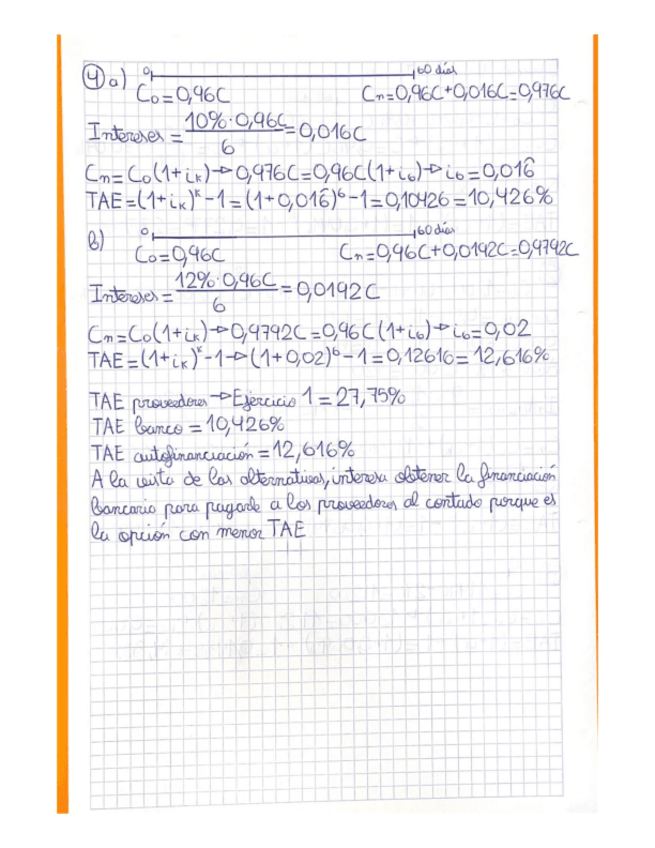 4 a) 0 60 días
C₀=0,96C Cn=0,96C+0,016C=0,976C
Intereses = 10%·0,96C/6 = 0,016C
Cn=C₀(1+iₖ)→0,976C=0,96C(1+i₆)→i₆=0,016̂
TAE=(1+iₖ)ᵏ-1=(1+0,016̂)⁶-1=0,10426=10,426%
b) 0 60 días
C₀=0,96C Cn=0,96C+0,0192C=0,9792C
Intereses= 12%·0,96C/6 = 0,0192C
Cn=C₀(1+iₖ)→0,9792C=0,96C(1+i₆)→i₆=0,02
TAE=(1+iₖ)ᵏ-1→(1+0,02)⁶-1=0,12616=12,616%
TAE proveedores→Ejercicio 1=27,75%
TAE banco=10,426%
TAE autofinanciación=12,616%
A la vista de las alternativas, interesa obtener la financiación
bancaria para pagarle a los proveedores al contado porque es
la opción con menor TAE